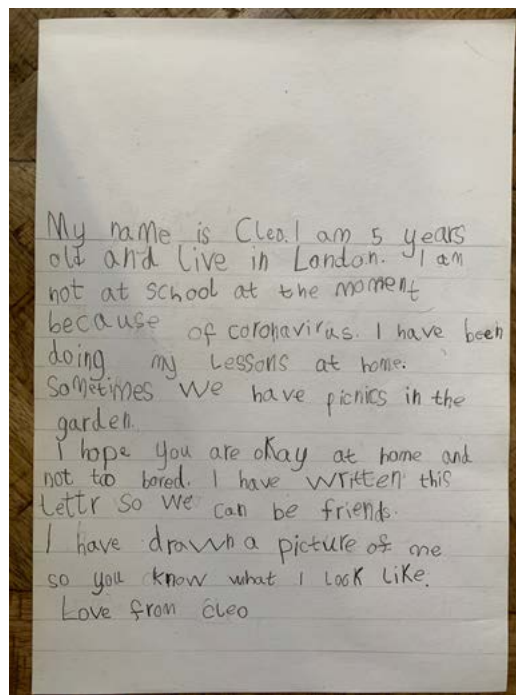 My name is Cleo. I am 5 years
old and live in London. I am
not at school at the moment
because of coronavirus. I have been
doing my Lessons at home.
Sometimes we have picnics in the
garden.
I hope you are okay at home and
not too bored. I have written this
Lettr so we can be friends.
I have drawn a picture of me
so you know what I look like.
Love from Cleo